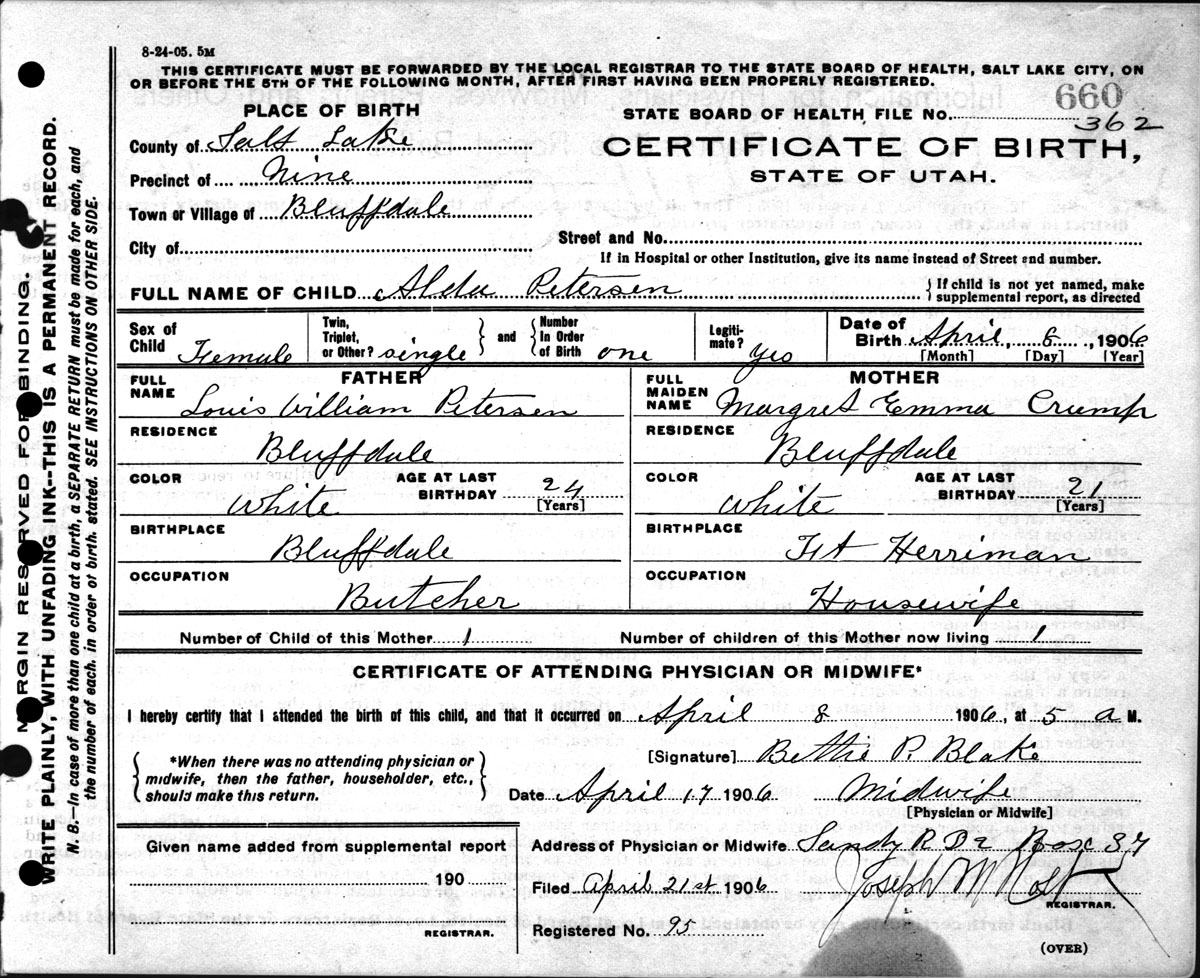 8-24-05. 5M
THIS CERTIFICATE MUST BE FORWARDED BY THE LOCAL REGISTRAR TO THE STATE BOARD OF HEALTH, SALT LAKE CITY, ON
OR BEFORE THE 5TH OF THE FOLLOWING MONTH, AFTER FIRST HAVING BEEN PROPERLY REGISTERED.
660
PLACE OF BIRTH
STATE BOARD OF HEALTH FILE No. 362
County of Salt Lake
CERTIFICATE OF BIRTH,
STATE OF UTAH.
Precinct of Nine
Town or Village of Bluffdale
City of
Street and No.
If in Hospital or other Institution, give its name instead of Street and number.
FULL NAME OF CHILD Alda Petersen
If child is not yet named, make
supplemental report, as directed
Sex of Child Female
Twin, Triplet, or Other? single
and
Number In Order of Birth one
Legitimate? Yes
Date of Birth April, 8, 1906
[Month] [Day] [Year]
FATHER
MOTHER
FULL NAME Louis William Petersen
FULL MAIDEN NAME Margret Emma Crump
RESIDENCE Bluffdale
RESIDENCE Bluffdale
COLOR White AGE AT LAST BIRTHDAY 24 [Years]
COLOR White AGE AT LAST BIRTHDAY 21 [Years]
BIRTHPLACE Bluffdale
BIRTHPLACE Herriman
OCCUPATION Butcher
OCCUPATION Housewife
Number of Child of this Mother 1 Number of children of this Mother now living 1
CERTIFICATE OF ATTENDING PHYSICIAN OR MIDWIFE*
I hereby certify that I attended the birth of this child, and that it occurred on April 8 1906, at 5 a M.
*When there was no attending physician or
midwife, then the father, householder, etc.,
should make this return.
[Signature] Bettie P. Blake
Date April 17 1906 Midwife
[Physician or Midwife]
Given name added from supplemental report
190
REGISTRAR.
Address of Physician or Midwife Sandy R D 2 Box 37
Filed April 21st 1906 Joseph M
REGISTRAR.
Registered No. 95
(OVER)
MARGIN RESERVED FOR BINDING.
WRITE PLAINLY, WITH UNFADING INK--THIS IS A PERMANENT RECORD.
N. B.—In case of more than one child at a birth, a SEPARATE RETURN must be made for each, and
the number of each, in order of birth, stated. SEE INSTRUCTIONS ON OTHER SIDE.